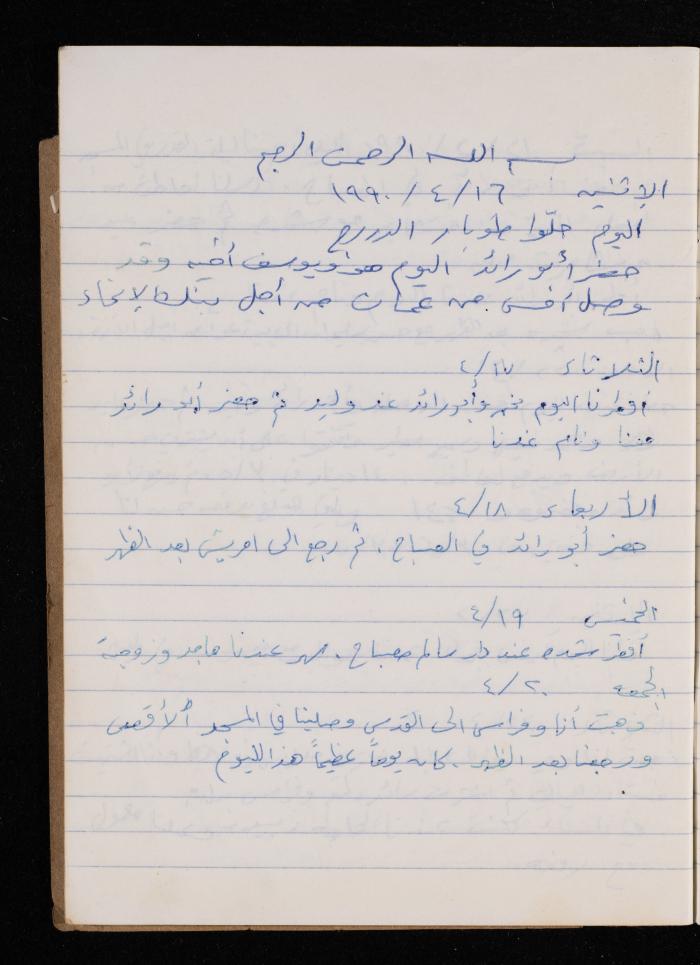 بسم الله الرحمن الرحيم
الاثنين ١٦/٤/١٩٩٠
اليوم حلّوا طوبار الدرج
حضر أبو رائد اليوم هو ويوسف أخيه وقد
وصل أمس من عمان من أجل بنك الإنماء
الثلاثاء ٤/١٧
أفطرنا اليوم نحن وأبو رائد عند وليد ثم حضر أبو رائد
هنا ونام عندنا
الأربعاء ٤/١٨
حضر أبو رائد في الصباح. ثم رجع الى امريش بعد الظهر
الخميس ٤/١٩
أفطر عند دار سالم مصباح. سهر عندنا ماجد وزوجته
الجمعة ٤/٢٠
ذهبت أنا وفراس الى القدس وصلينا في المسجد الأقصى
ورجعنا بعد الظهر. كان يوماً عظيماً هذا اليوم